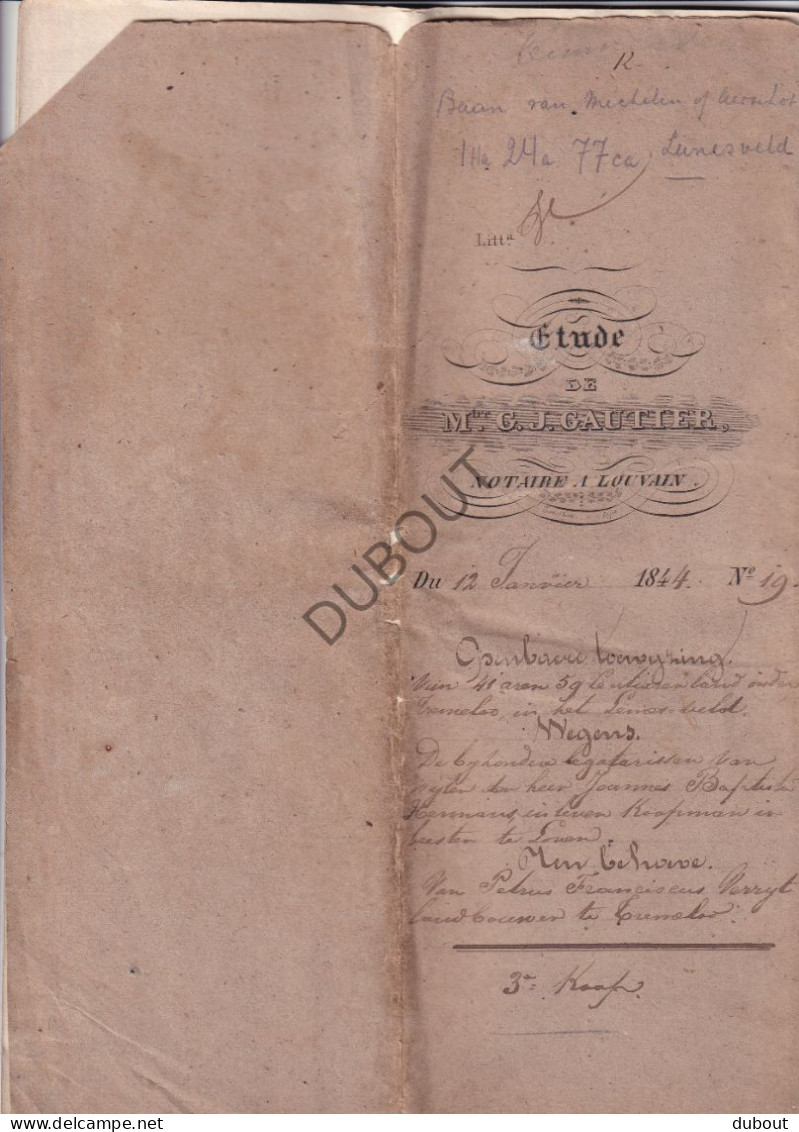 R
Baan van Mechelen of Aerschot
1 Ha 24a 77ca Lunesveld
Litt.ª
Etude
DE
M.tre C. J. GAUTIER,
NOTAIRE A LOUVAIN.
Du 12 Janvier 1844. N.º 19.
Openbaere toewyzing.
Van 41 aren 59 Centiaren land onder
Tremeloo, in het Lunes-veld.
Wegens.
De byhondere legatarissen van
wylen den heer Joannes Baptista
Hermans, in leven Koopman in
beesten te Loven
Ten behoeve.
Van Petrus Franciscus Verryt
landbouwer te Tremeloo.
3e Koop.
DUBOUT
delcampe.net
dubout